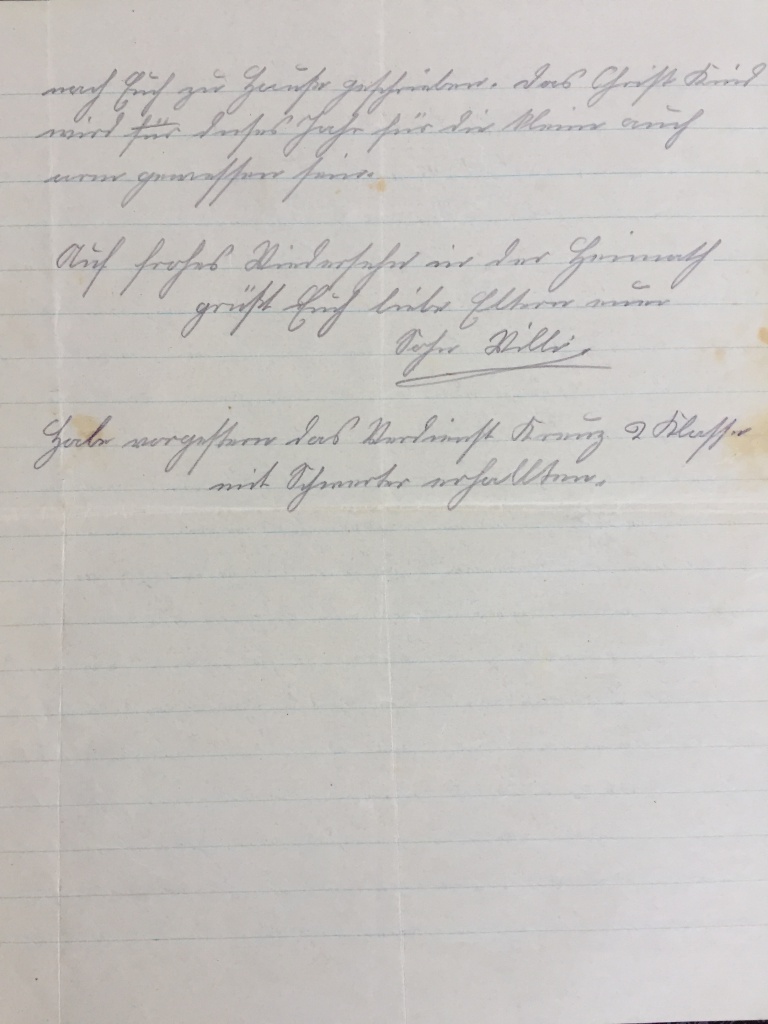 nach Euch zu Hause geschrieben. Das Christ Kind
wird für dieses Jahr für die kleine auch
arm gewessen sein.
Auf frohes Wiedersehn in der Heimath
grüßt Euch liebe Eltern euer
Sohn Willi.
Habe vorgestern das Verdienst Kreuz 2 Klasse
mit Schwerter erhallten.